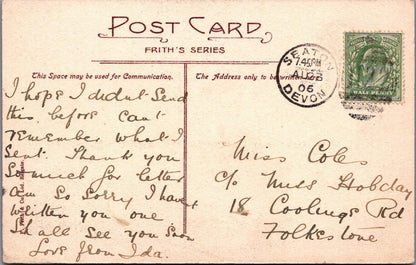 POST CARD
FRITH'S SERIES
This Space may be used for Communication.
The Address only to be written
SEATON
7.45PM
06
DEVON
HALF PENNY
I hope I didnt Send
this before Can't
remember what I
Sent. Thank you
So much for letter
am So Sorry I havent
written you one
Shall See you Soon
Love from Ida.
Miss Coles
c/o Miss Hobday
18 Coolings Rd
Folkestone